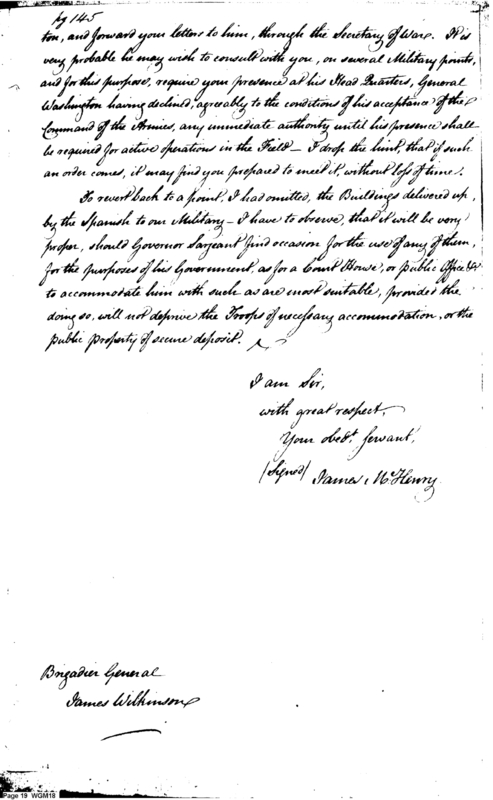 pg 145
ton, and forward your letters to him, through the Secretary of War. It is
very probable he may wish to consult with you, on several Military points,
and for this purpose, require your presence at his Head Quarters, General
Washington having declined, agreably to the conditions of his acceptance of the
Command of the Armies, any immediate authority until his presence shall
be required for active operations in the Field — I drop the hint, that if such
an order comes, it may find you prepared to meet it, without loss of time.
To revert back to a point, I had omitted, the Buildings delivered up,
by the Spanish to our Military — I have to observe, that it will be very
proper, should Governor Sargeant find occasion for the use of any of them,
for the purposes of his Government, as for a Court House, or public Office &c
to accommodate him with such as are most suitable, provided the
doing so, will not deprive the Troops of necessary accommodation, or the
public property of secure deposit.
I am Sir,
with great respect,
Your obedt. servant,
(Signed) James McHenry
Brigadier General
James Wilkinson
Page 19 WGM18